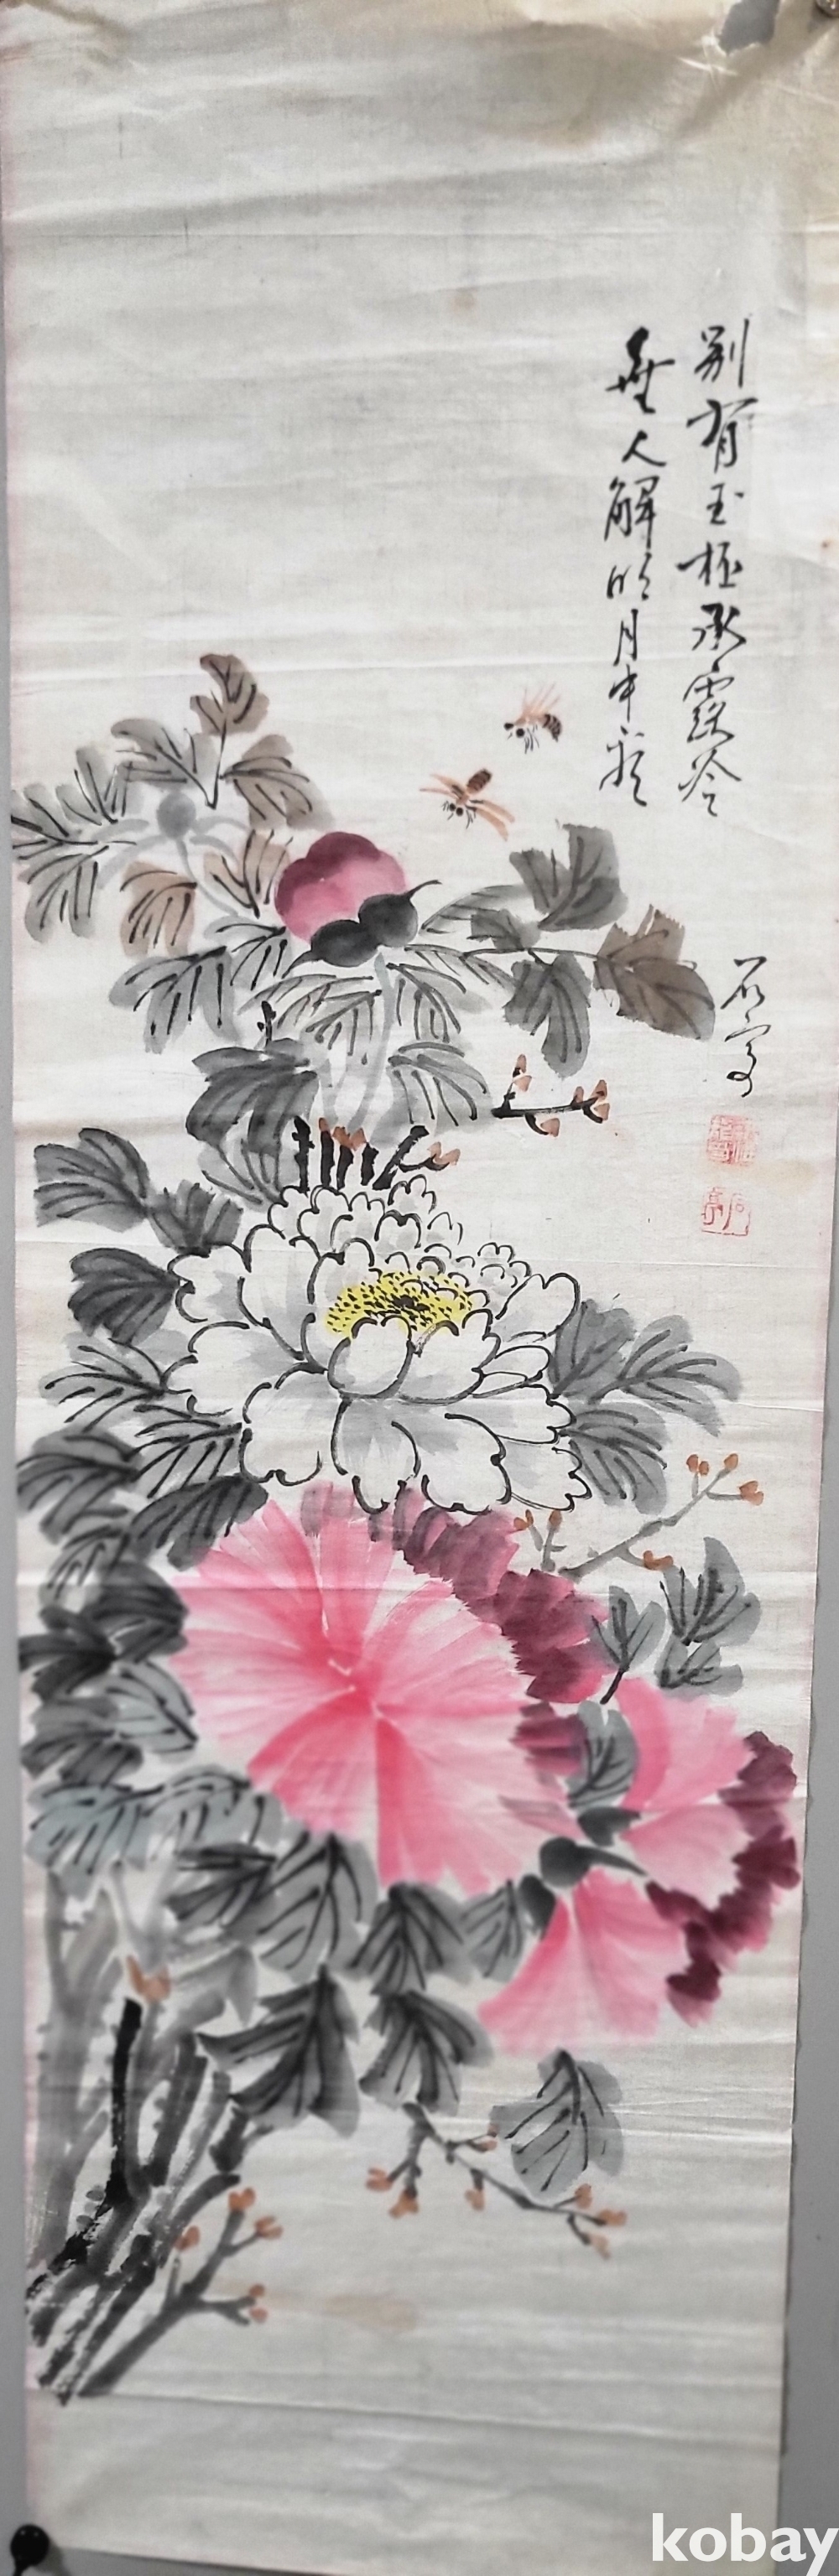 別有玉柸承露冷
無人解月中看
石亭
kobay